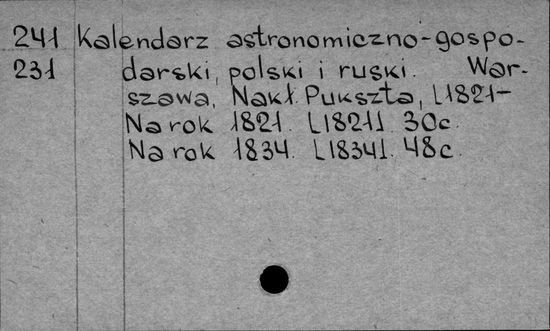 241 Kalendarz astronomiczno-gospo-
231 darski, polski i ruski. War-
szawa, Nakł. Pukszta, [1821-
Na rok 1821. [1821]. 30c.
Na rok 1834. [1834]. 48c.